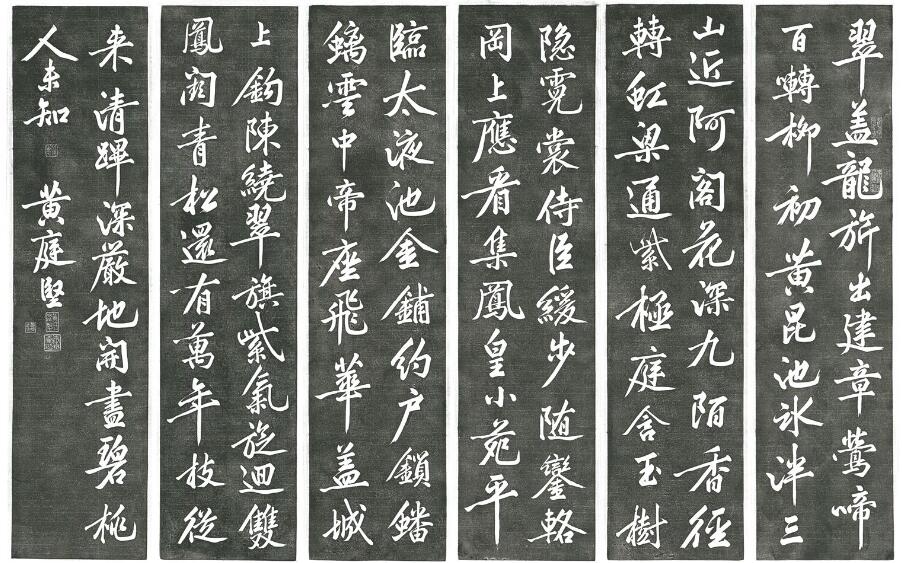 翠盖龍旂出建章鶯啼
百囀柳初黄昆池氷泮三
山近阿閣花深九陌香徑
轉虹梁通紫極庭含玉樹
隐霓裳侍臣緩步随鑾輅
岡上應看集鳳皇小苑平
臨太液池金鋪約户鎖蟠
螭雲中帝座飛華盖城
上鈎陳繞翠旗紫氣旋迴雙
鳳闕青松還有萬年枝從
来清蹕深厳地開盡碧桃
人未知
黄庭堅